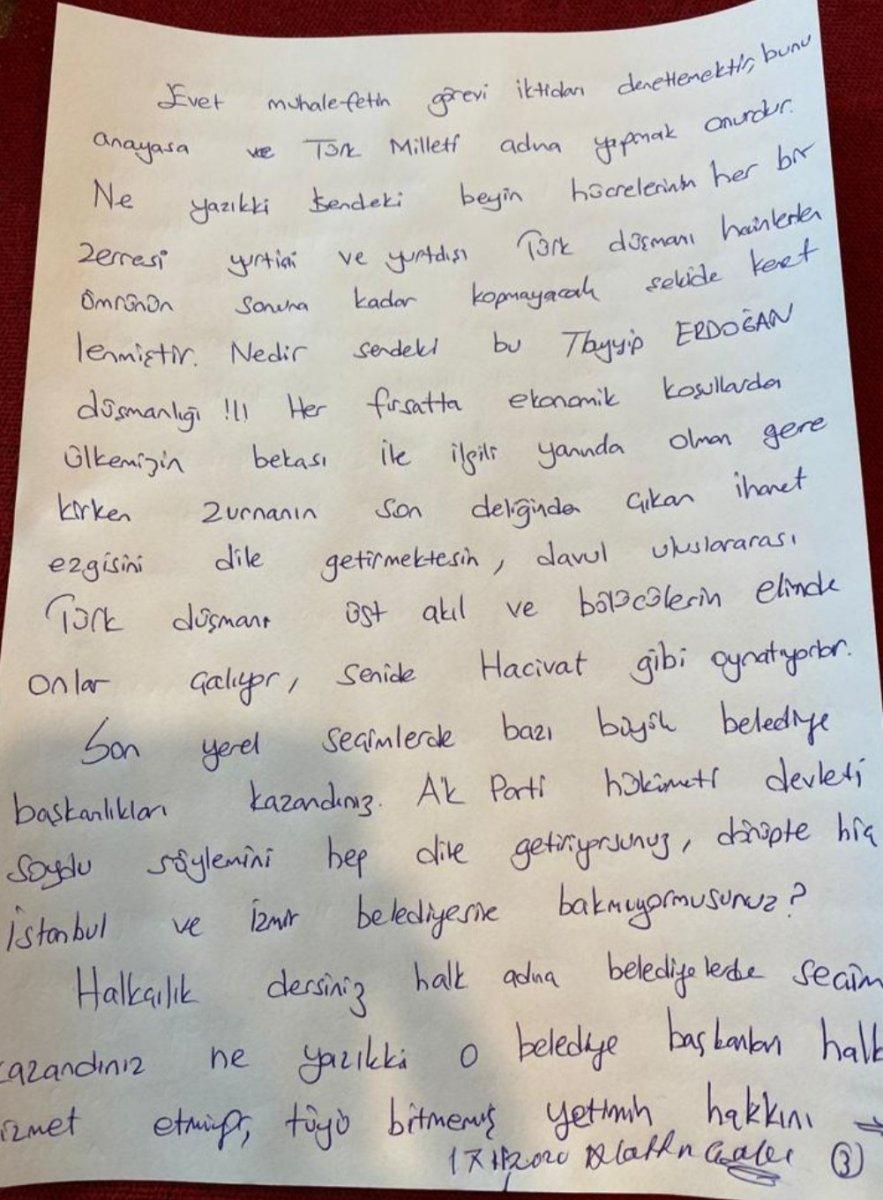 Evet muhalefetin görevi iktidarı denetlemektir, bunu
anayasa ve Türk Milleti adına yapmak onurdur.
Ne yazıkki sendeki beyin hücrelerinin her bir
zerresi yurtiçi ve yurtdışı Türk düşmanı hainlerle
ömrünün sonuna kadar kopmayacak şekide kenet
lenmiştir. Nedir sendeki bu Tayyip ERDOĞAN
düşmanlığı !!! Her fırsatta ekonomik koşullarda
ülkemizin bekası ile ilgili yanında olman gere
kirken zurnanın son deliğinde çıkan ihanet
ezgisini dile getirmektesin, davul uluslararası
Türk düşmanı üst akıl ve bölücülerin elinde
onlar çalıyor, senide Hacivat gibi oynatıyorlar.
Son yerel seçimlerde bazı büyük belediye
başkanlıkları kazandınız. AK Parti hükümeti devleti
soydu söylemini hep dile getiriyorsunuz, dönüpte hiç
İstanbul ve İzmir belediyesine bakmıyormusunuz?
Halkçılık dersiniz halk adına belediyelerde seçim
kazandınız ne yazıkki o belediye başkanları halk
izmet etmiyor, tüyü bitmemiş yetimin hakkını →
3